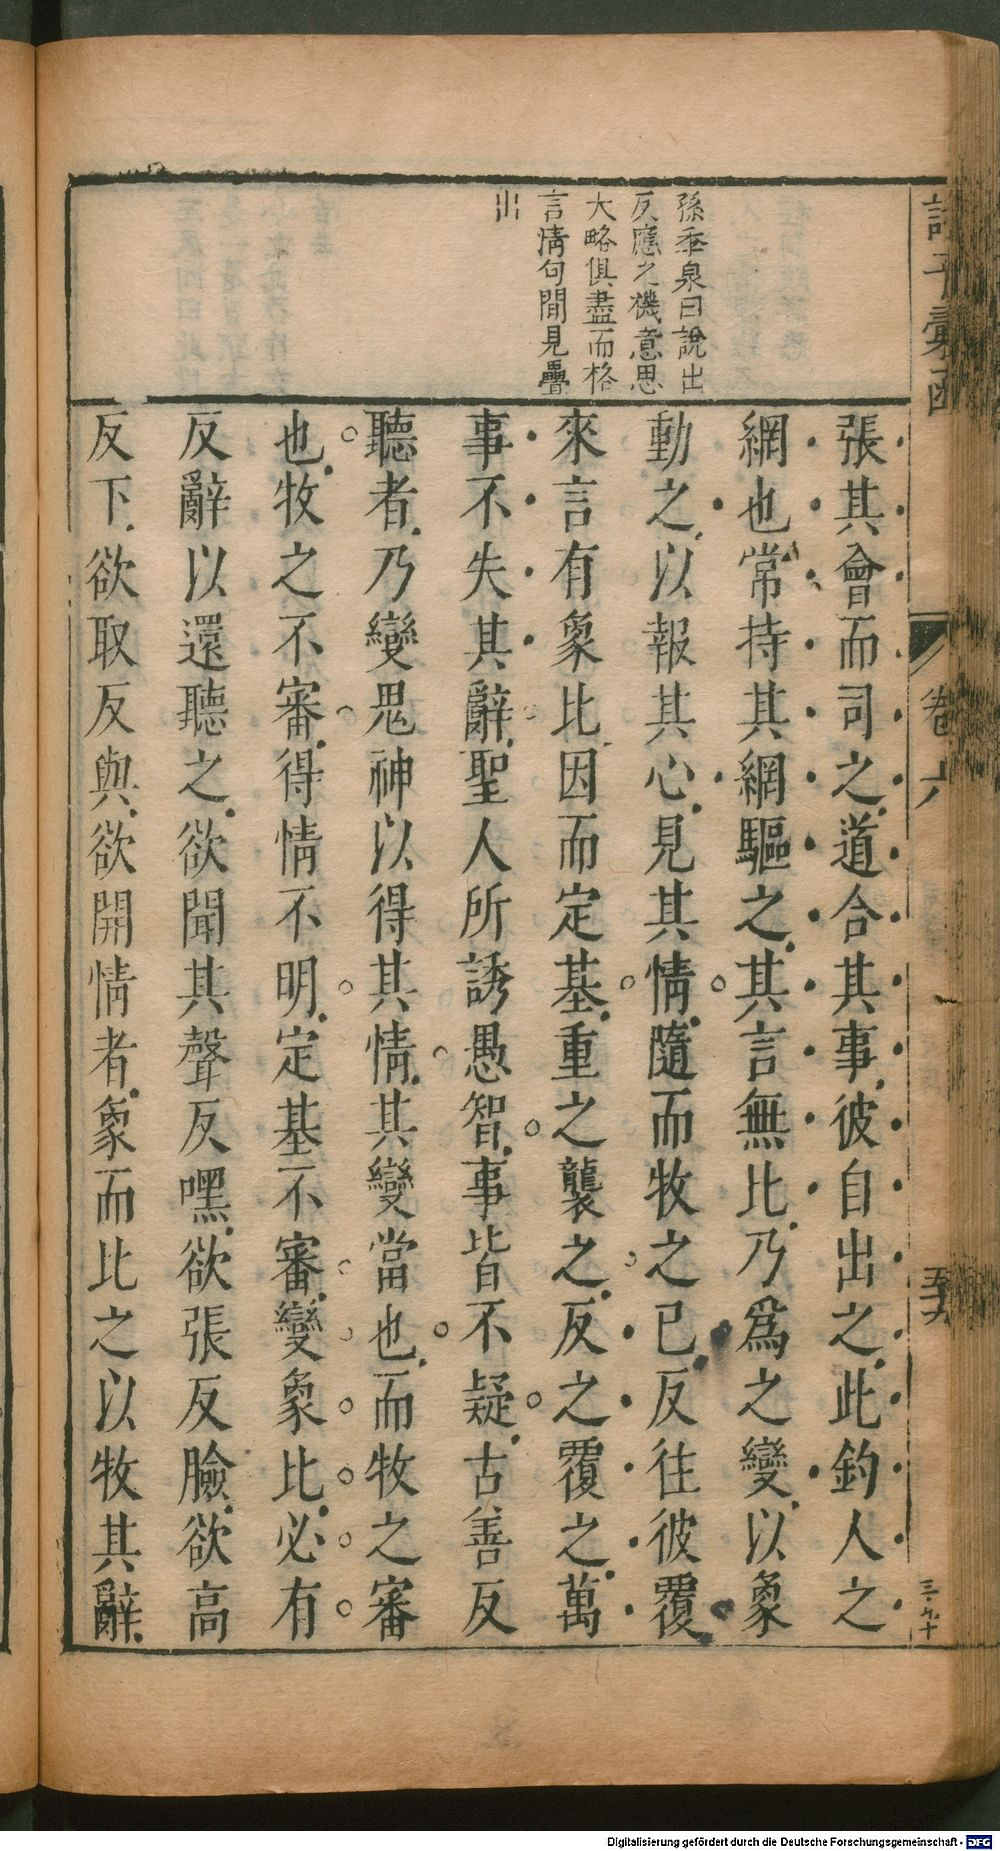 孫季泉曰說出
反應之機意思
大略俱盡而格
言情句間見疊
出
張其會而司之道合其事彼自出之此釣人之
網也常持其網驅之其言無比乃爲之變以象
動之以報其心見其情隨而牧之已反往彼覆
來言有象比因而定基重之襲之反之覆之萬
事不失其辭聖人所誘愚智事皆不疑古善反
聽者乃變鬼神以得其情其變當也而牧之審
也牧之不審得情不明定基不審變象比必有
反辭以還聽之欲聞其聲反嘿欲張反臉欲高
反下欲取反與欲開情者象而比之以牧其辭
卷六
Digitalisierung gefördert durch die Deutsche Forschungsgemeinschaft - DFG